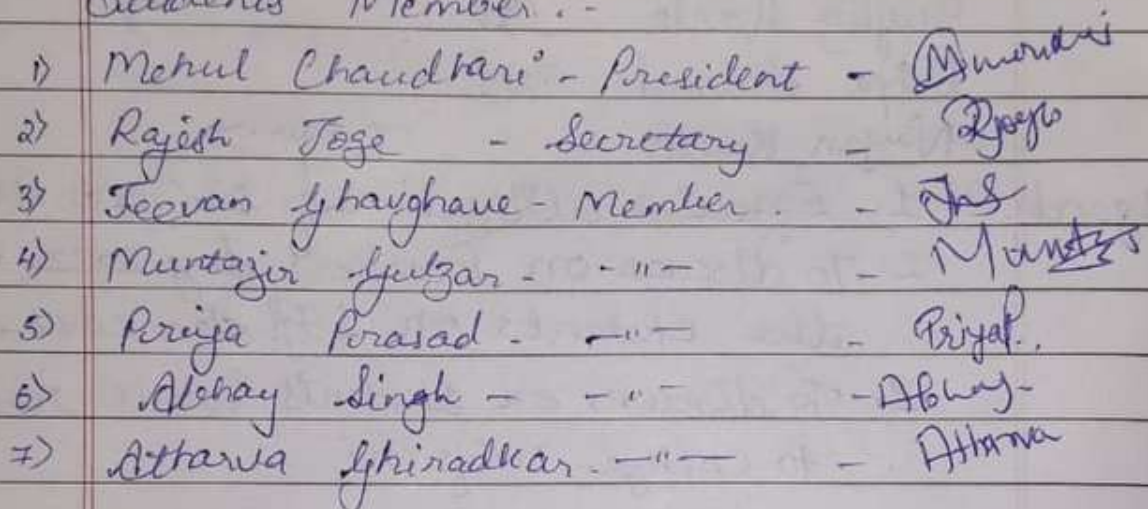 Students Member :-
1) Mehul Chaudhari - President -
2) Rajesh Joge - Secretary -
3) Jeevan Ghavghave - Member. -
4) Muntazir Gulzar - -"- -
5) Priya Prasad - -"- - PriyaP.
6) Abhay Singh - -"- - Abhay
7) Atharva Ghiradkar. -"- - Atharva